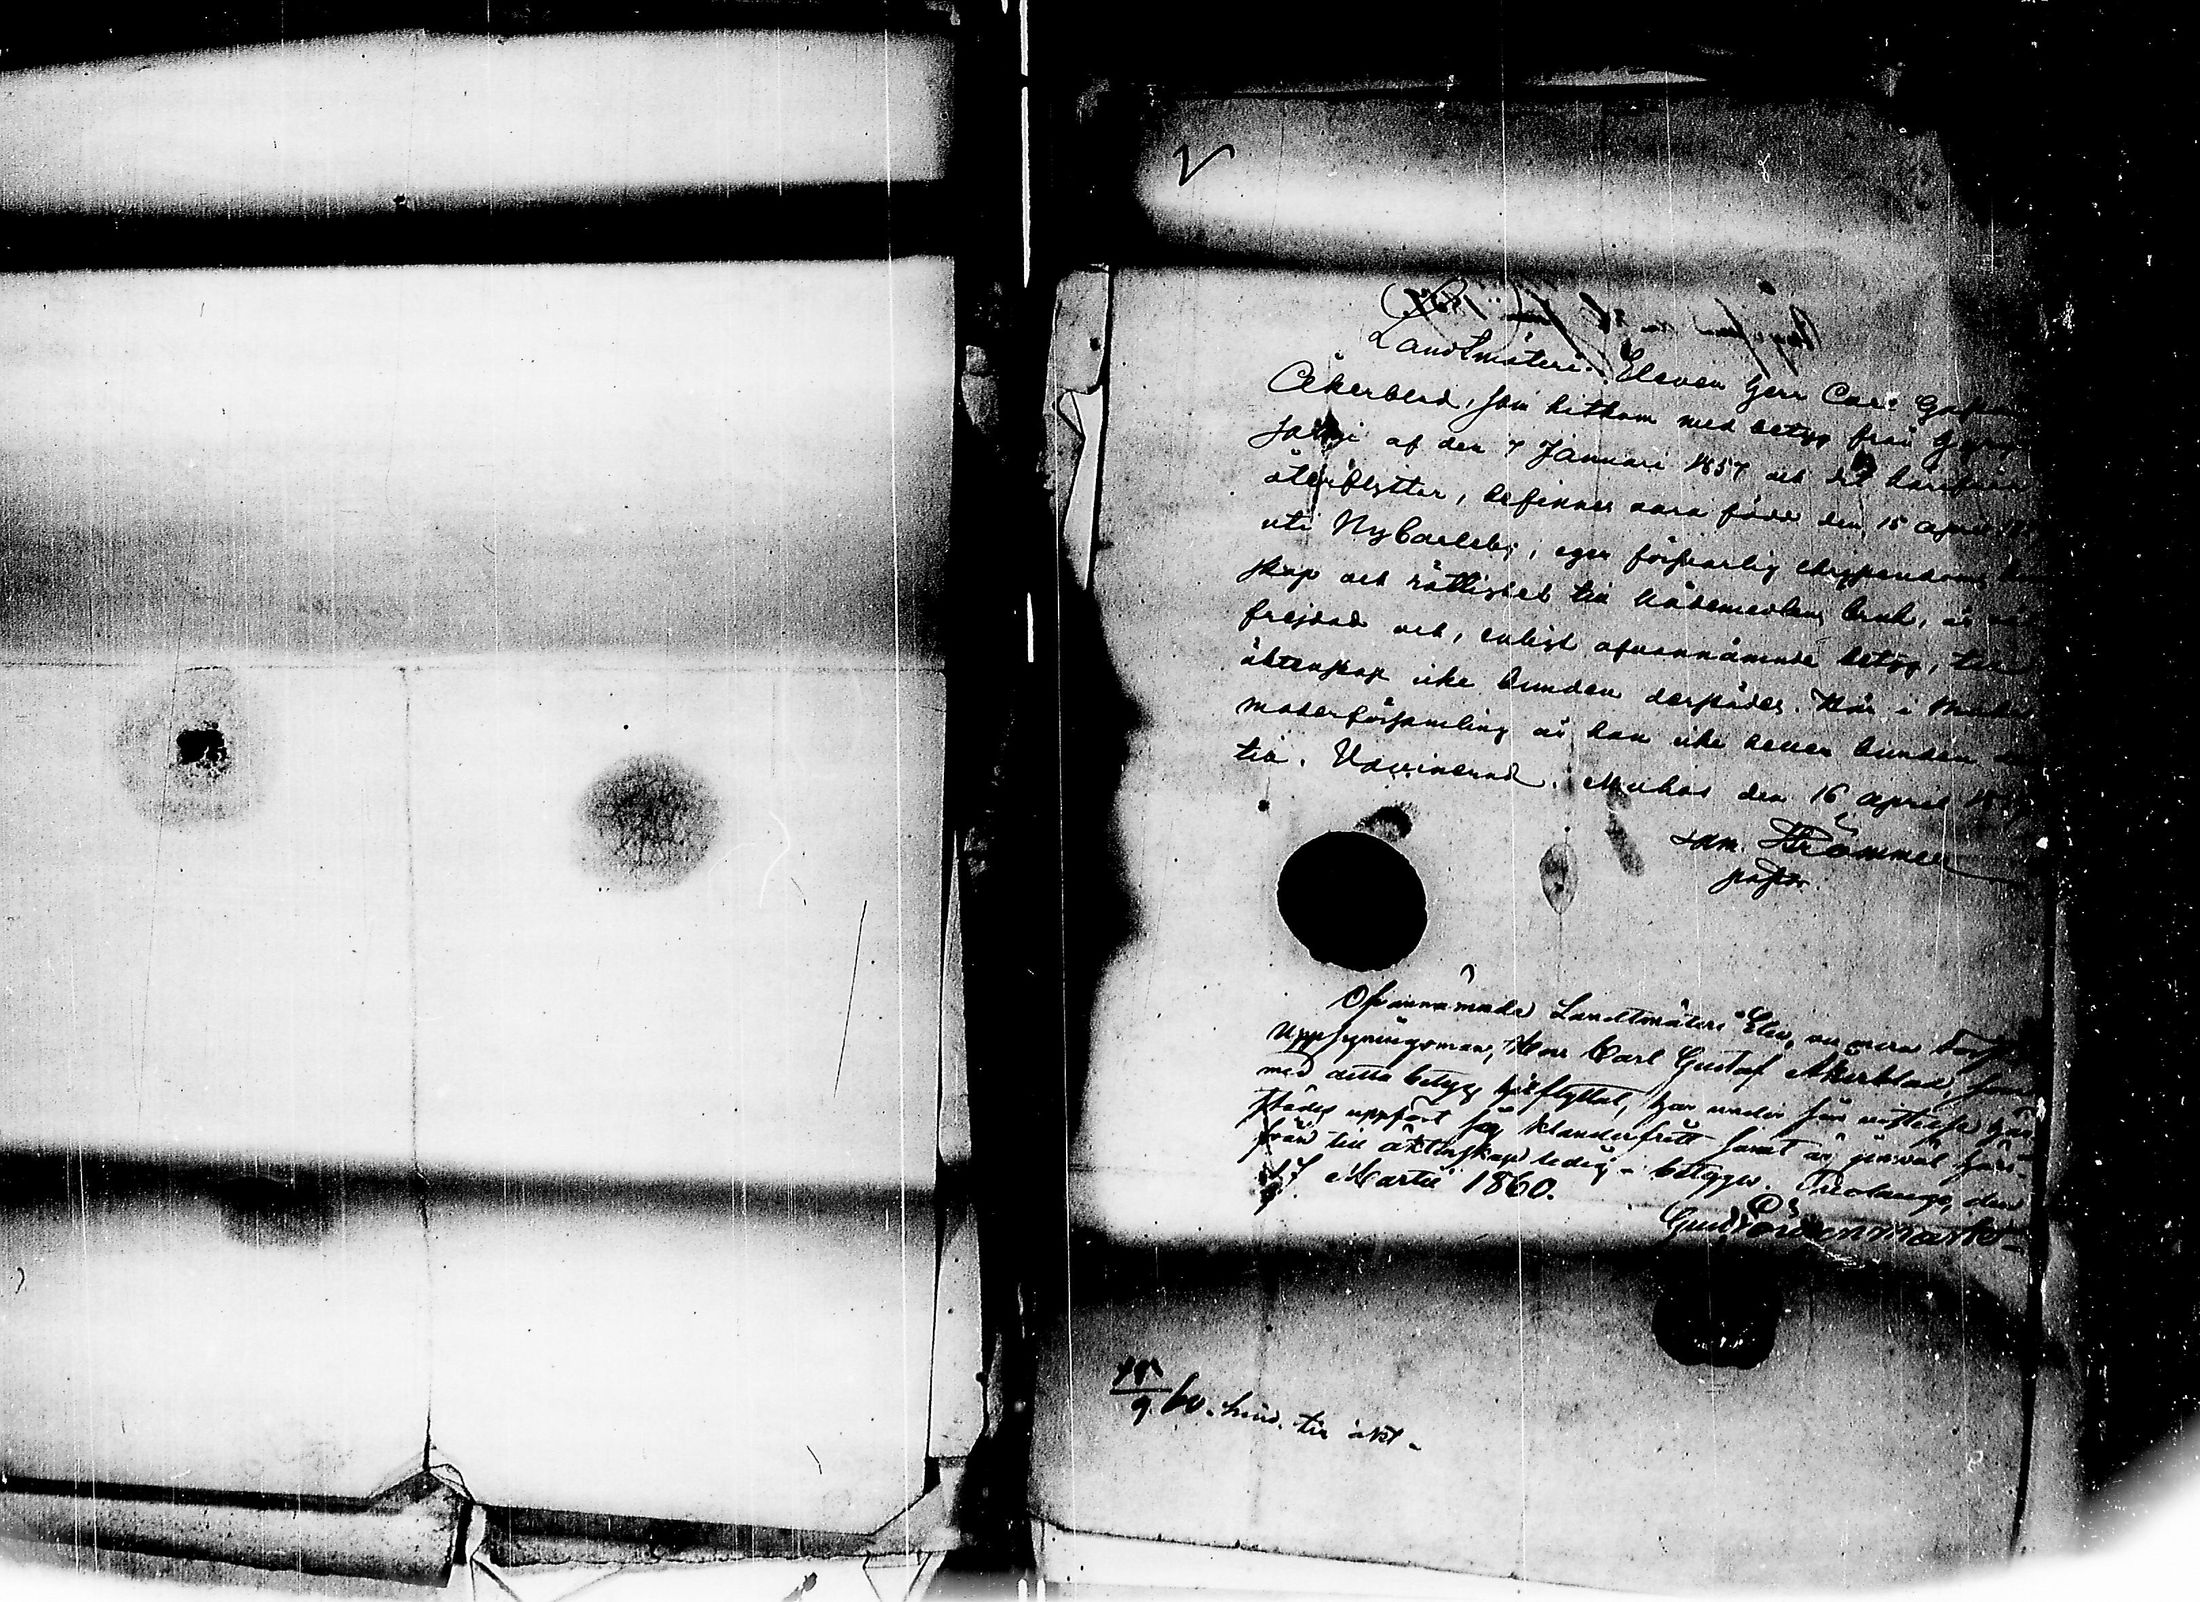 Landtmäteri Eleven Herr Carl Gustaf
Åkerblad, som hitkom med betyg från
af den 7 Januari 1857 och nu härifrån
återflyttar, befinnes vara född den 15 April
uti Nykarleby, eger försvarlig christendoms kun
skap och rättighet till nådemedlens bruk, är väl
frejdad och, enligt ofvannämnde betyg, till
äktenskap icke bunden derstädes. Här i Muhos
moderförsamling är han icke heller bunden der
till. Muhos den 16 April
Sam. Strömmer
pastor.
Ofvannämnde Landtmäteri Elev, nu mera Forst
Uppsyningsman, Herr Carl Gustaf Åkerblad, som
med detta betyg hitflyttat, har under sin vistelse här
städes uppfört sig klanderfritt samt är jemväl häri-
från till äktenskap ledig - betygar. den
17 Martii 1860.
9 60. till äkt.